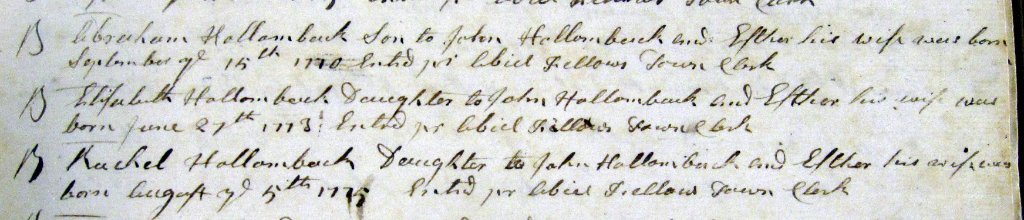 B Abraham Hollomback Son to John Hollomback and Esther his wife was born
September ye 15th 1770 Entrd pr Abiel Fellows Town Clerk
B Elisabeth Hollomback Daughter to John Hollomback and Esther his wife was
born June 27th 1773 Entrd pr Abiel Fellows Town Clerk
B Rachel Hollomback Daughter to John Hollomback and Esther his wife was
born August ye 5th 1775 Entrd pr Abiel Fellows Town Clerk